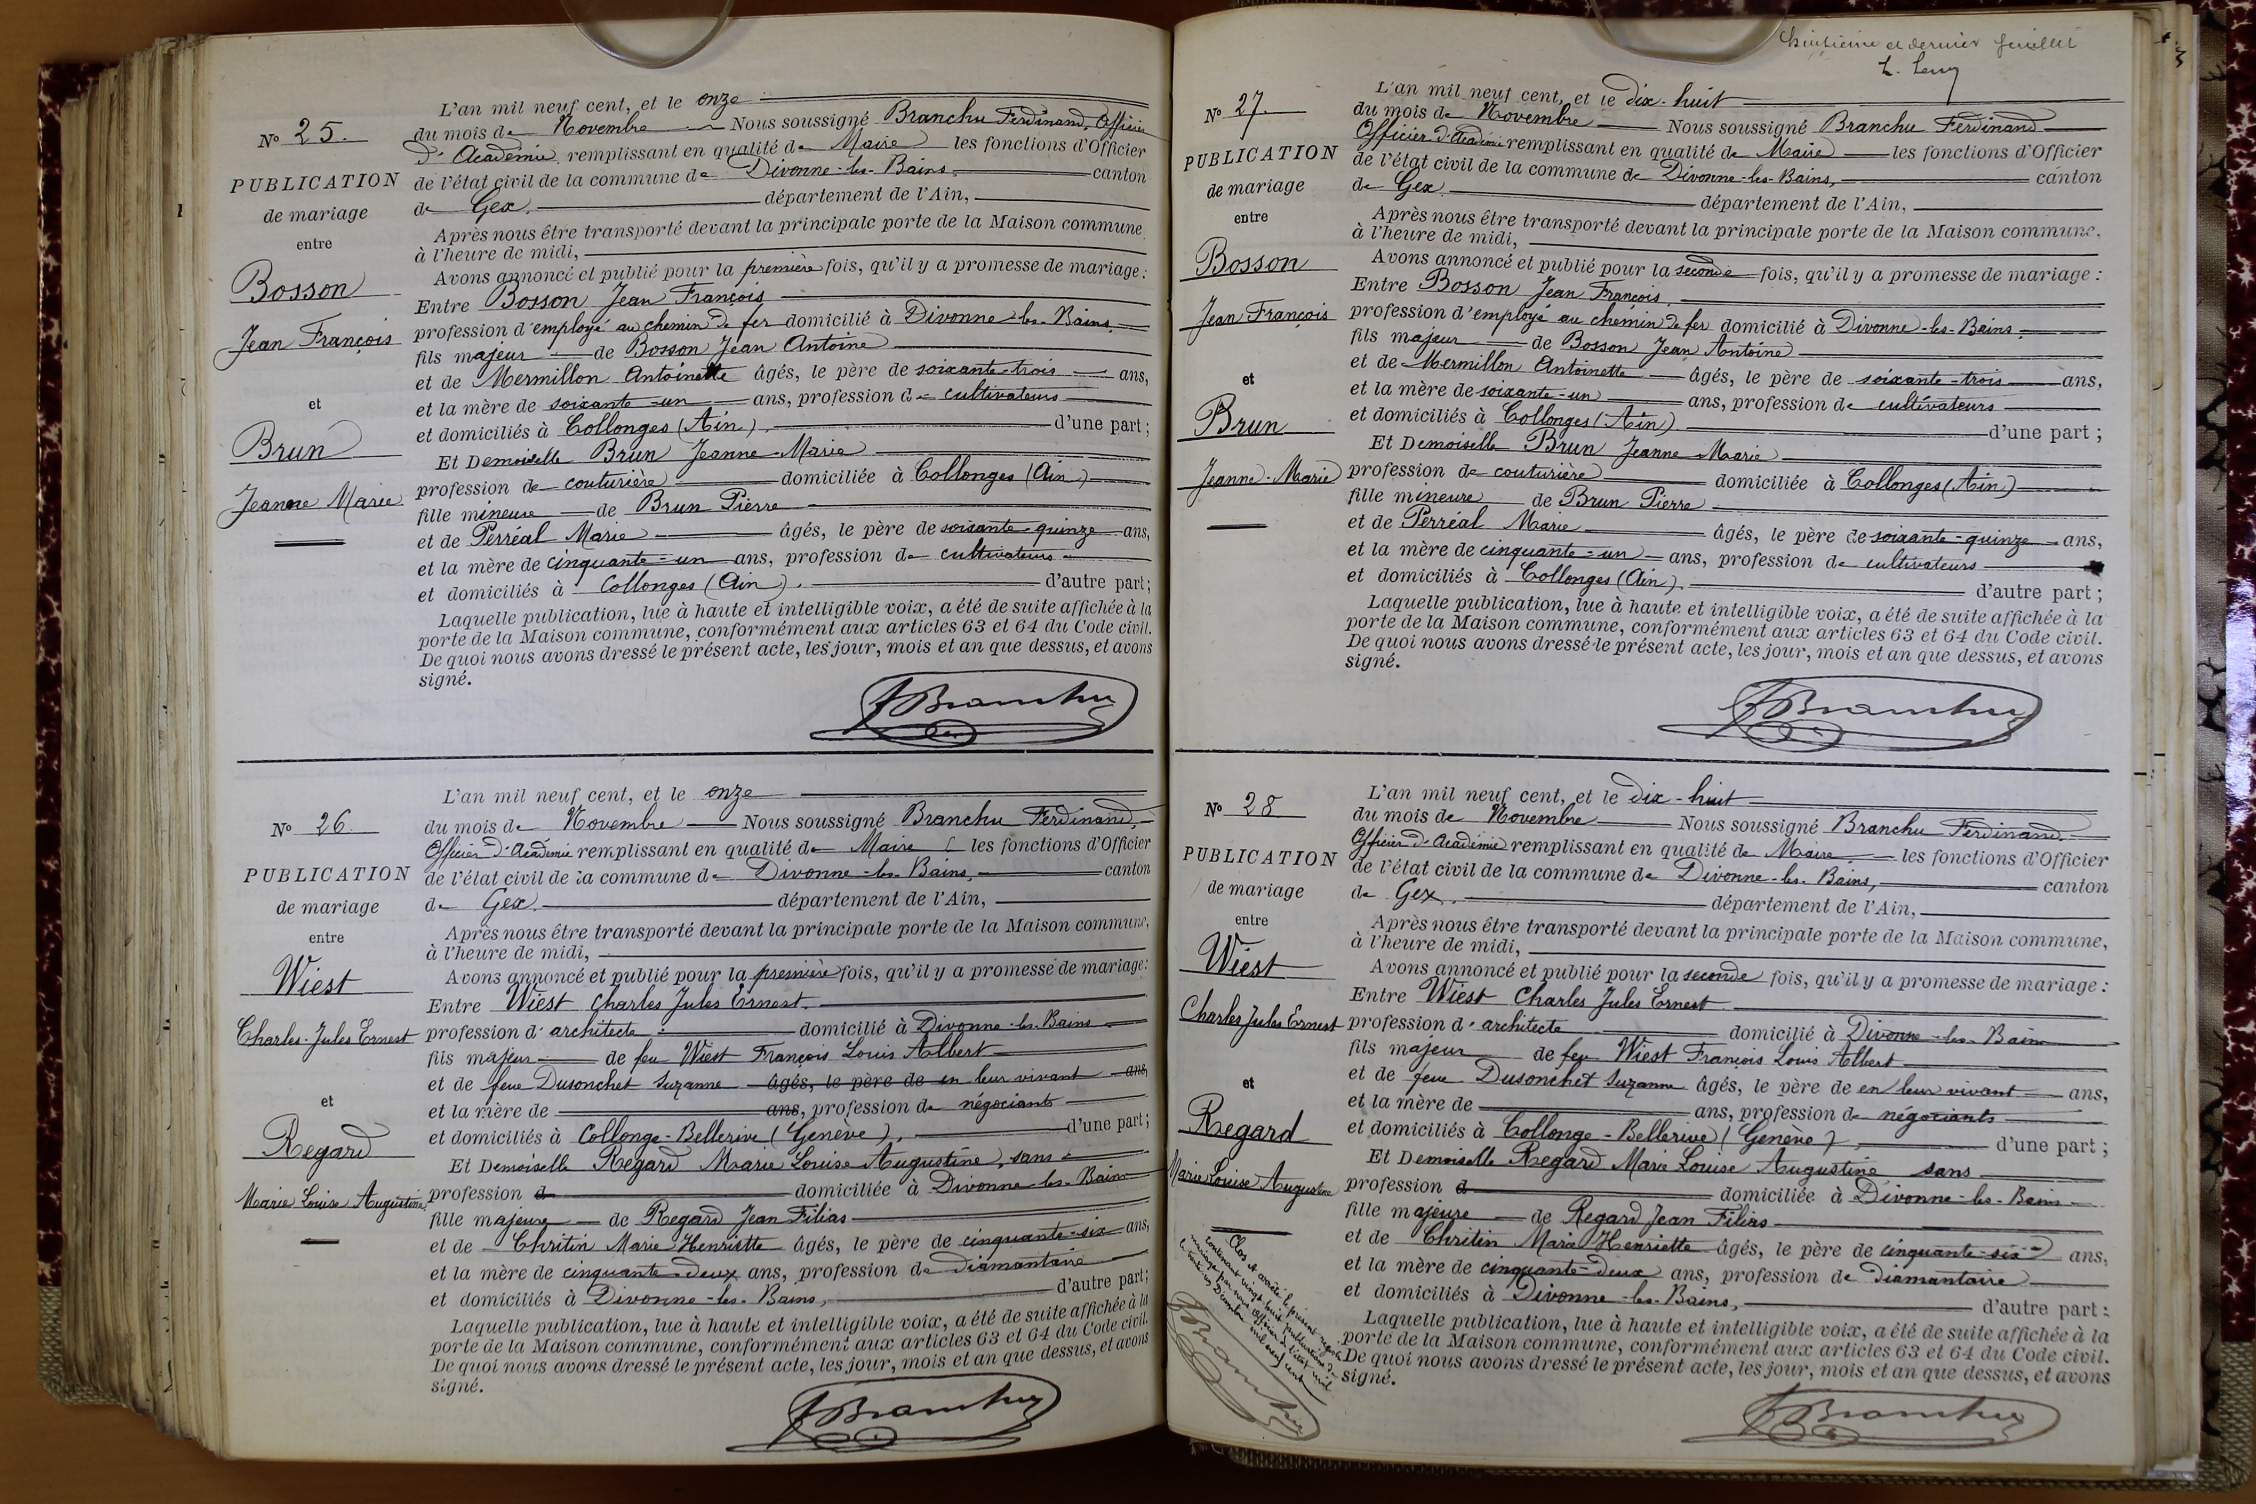 N° 25.
PUBLICATION
de mariage
entre
Bosson
Jean François
et
Brun
Jeanne Marie
L'an mil neuf cent, et le onze
du mois de Novembre Nous soussigné Branchu Ferdinand, Officier
d'Académie, remplissant en qualité de Maire les fonctions d'Officier
de l'état civil de la commune de Divonne-les-Bains, canton
de Gex, département de l'Ain,
Après nous être transporté devant la principale porte de la Maison commune,
à l'heure de midi,
Avons annoncé et publié pour la première fois, qu'il y a promesse de mariage:
Entre Bosson Jean François
profession d'employé au chemin de fer domicilié à Divonne-les-Bains,
fils majeur de Bosson Jean Antoine
et de Mermillon Antoinette âgés, le père de soixante-trois ans,
et la mère de soixante-un ans, profession de cultivateurs
et domiciliés à Collonges (Ain), d'une part;
Et Demoiselle Brun Jeanne-Marie
profession de couturière domiciliée à Collonges (Ain)
fille mineure de Brun Pierre
et de Perréal Marie âgés, le père de soixante-quinze ans,
et la mère de cinquante-un ans, profession de cultivateurs
et domiciliés à Collonges (Ain). d'autre part;
Laquelle publication, lue à haute et intelligible voix, a été de suite affichée à la
porte de la Maison commune, conformément aux articles 63 et 64 du Code civil.
De quoi nous avons dressé le présent acte, les jour, mois et an que dessus, et avons
signé.
FBranchu
N° 26.
PUBLICATION
de mariage
entre
Wiest
Charles-Jules Ernest
et
Regard
Marie Louise Augustine
L'an mil neuf cent, et le onze
du mois de Novembre Nous soussigné Branchu Ferdinand,
Officier d'Académie remplissant en qualité de Maire les fonctions d'Officier
de l'état civil de la commune de Divonne-les-Bains, canton
de Gex, département de l'Ain,
Après nous être transporté devant la principale porte de la Maison commune,
à l'heure de midi,
Avons annoncé et publié pour la première fois, qu'il y a promesse de mariage:
Entre Wiest Charles Jules Ernest.
profession d'architecte domicilié à Divonne-les-Bains
fils majeur de feu Wiest François Louis Albert
et de feue Dusonchet Suzanne âgés, le père de en leur vivant ans,
et la mère de ans, profession de négociants
et domiciliés à Collonge-Bellerive (Genève), d'une part;
Et Demoiselle Regard Marie Louise Augustine, sans
profession d domiciliée à Divonne-les-Bains
fille majeure de Regard Jean Filias
et de Chritin Marie Henriette âgés, le père de cinquante-six ans,
et la mère de cinquante-deux ans, profession de diamantaire
et domiciliés à Divonne-les-Bains, d'autre part;
Laquelle publication, lue à haute et intelligible voix, a été de suite affichée à la
porte de la Maison commune, conformément aux articles 63 et 64 du Code civil.
De quoi nous avons dressé le présent acte, les jour, mois et an que dessus, et avons
signé.
FBranchu
et dernier feuillet
N° 27.
PUBLICATION
de mariage
entre
Bosson
Jean François
et
Brun
Jeanne-Marie
L'an mil neuf cent, et le dix-huit
du mois de Novembre Nous soussigné Branchu Ferdinand
Officier d'Académie remplissant en qualité de Maire les fonctions d'Officier
de l'état civil de la commune de Divonne-les-Bains, canton
de Gex, département de l'Ain,
Après nous être transporté devant la principale porte de la Maison commune,
à l'heure de midi,
Avons annoncé et publié pour la seconde fois, qu'il y a promesse de mariage:
Entre Bosson Jean François,
profession d'employé au chemin de fer domicilié à Divonne-les-Bains,
fils majeur de Bosson Jean Antoine
et de Mermillon Antoinette âgés, le père de soixante-trois ans,
et la mère de soixante-un ans, profession de cultivateurs
et domiciliés à Collonges (Ain) d'une part;
Et Demoiselle Brun Jeanne Marie
profession de couturière domiciliée à Collonges (Ain)
fille mineure de Brun Pierre
et de Perréal Marie âgés, le père de soixante-quinze ans,
et la mère de cinquante-un ans, profession de cultivateurs
et domiciliés à Collonges (Ain), d'autre part;
Laquelle publication, lue à haute et intelligible voix, a été de suite affichée à la
porte de la Maison commune, conformément aux articles 63 et 64 du Code civil.
De quoi nous avons dressé le présent acte, les jour, mois et an que dessus, et avons
signé.
FBranchu
N° 28
PUBLICATION
de mariage
entre
Wiest
Charles Jules Ernest
et
Regard
Marie Louise Augustine
L'an mil neuf cent, et le dix-huit
du mois de Novembre Nous soussigné Branchu Ferdinand,
Officier d'Académie remplissant en qualité de Maire les fonctions d'Officier
de l'état civil de la commune de Divonne-les-Bains, canton
de Gex, département de l'Ain,
Après nous être transporté devant la principale porte de la Maison commune,
à l'heure de midi,
Avons annoncé et publié pour la seconde fois, qu'il y a promesse de mariage:
Entre Wiest Charles Jules Ernest
profession d'architecte domicilié à Divonne-les-Bains
fils majeur de feu Wiest François Louis Albert
et de feue Dusonchet Suzanne âgés, le père de en leur vivant ans,
et la mère de ans, profession de négociants
et domiciliés à Collonge-Bellerive (Genève), d'une part;
Et Demoiselle Regard Marie Louise Augustine sans
profession d domiciliée à Divonne-les-Bains
fille majeure de Regard Jean Filias
et de Chritin Marie Henriette âgés, le père de cinquante-six ans,
et la mère de cinquante-deux ans, profession de diamantaire
et domiciliés à Divonne-les-Bains, d'autre part;
Laquelle publication, lue à haute et intelligible voix, a été de suite affichée à la
porte de la Maison commune, conformément aux articles 63 et 64 du Code civil.
De quoi nous avons dressé le présent acte, les jour, mois et an que dessus, et avons
signé.
FBranchu
Clos et arrêté le présent registre
contenant vingt-huit publications de
mariage par nous officier de l'état civil
le trente un Décembre mil neuf cent
FBranchu